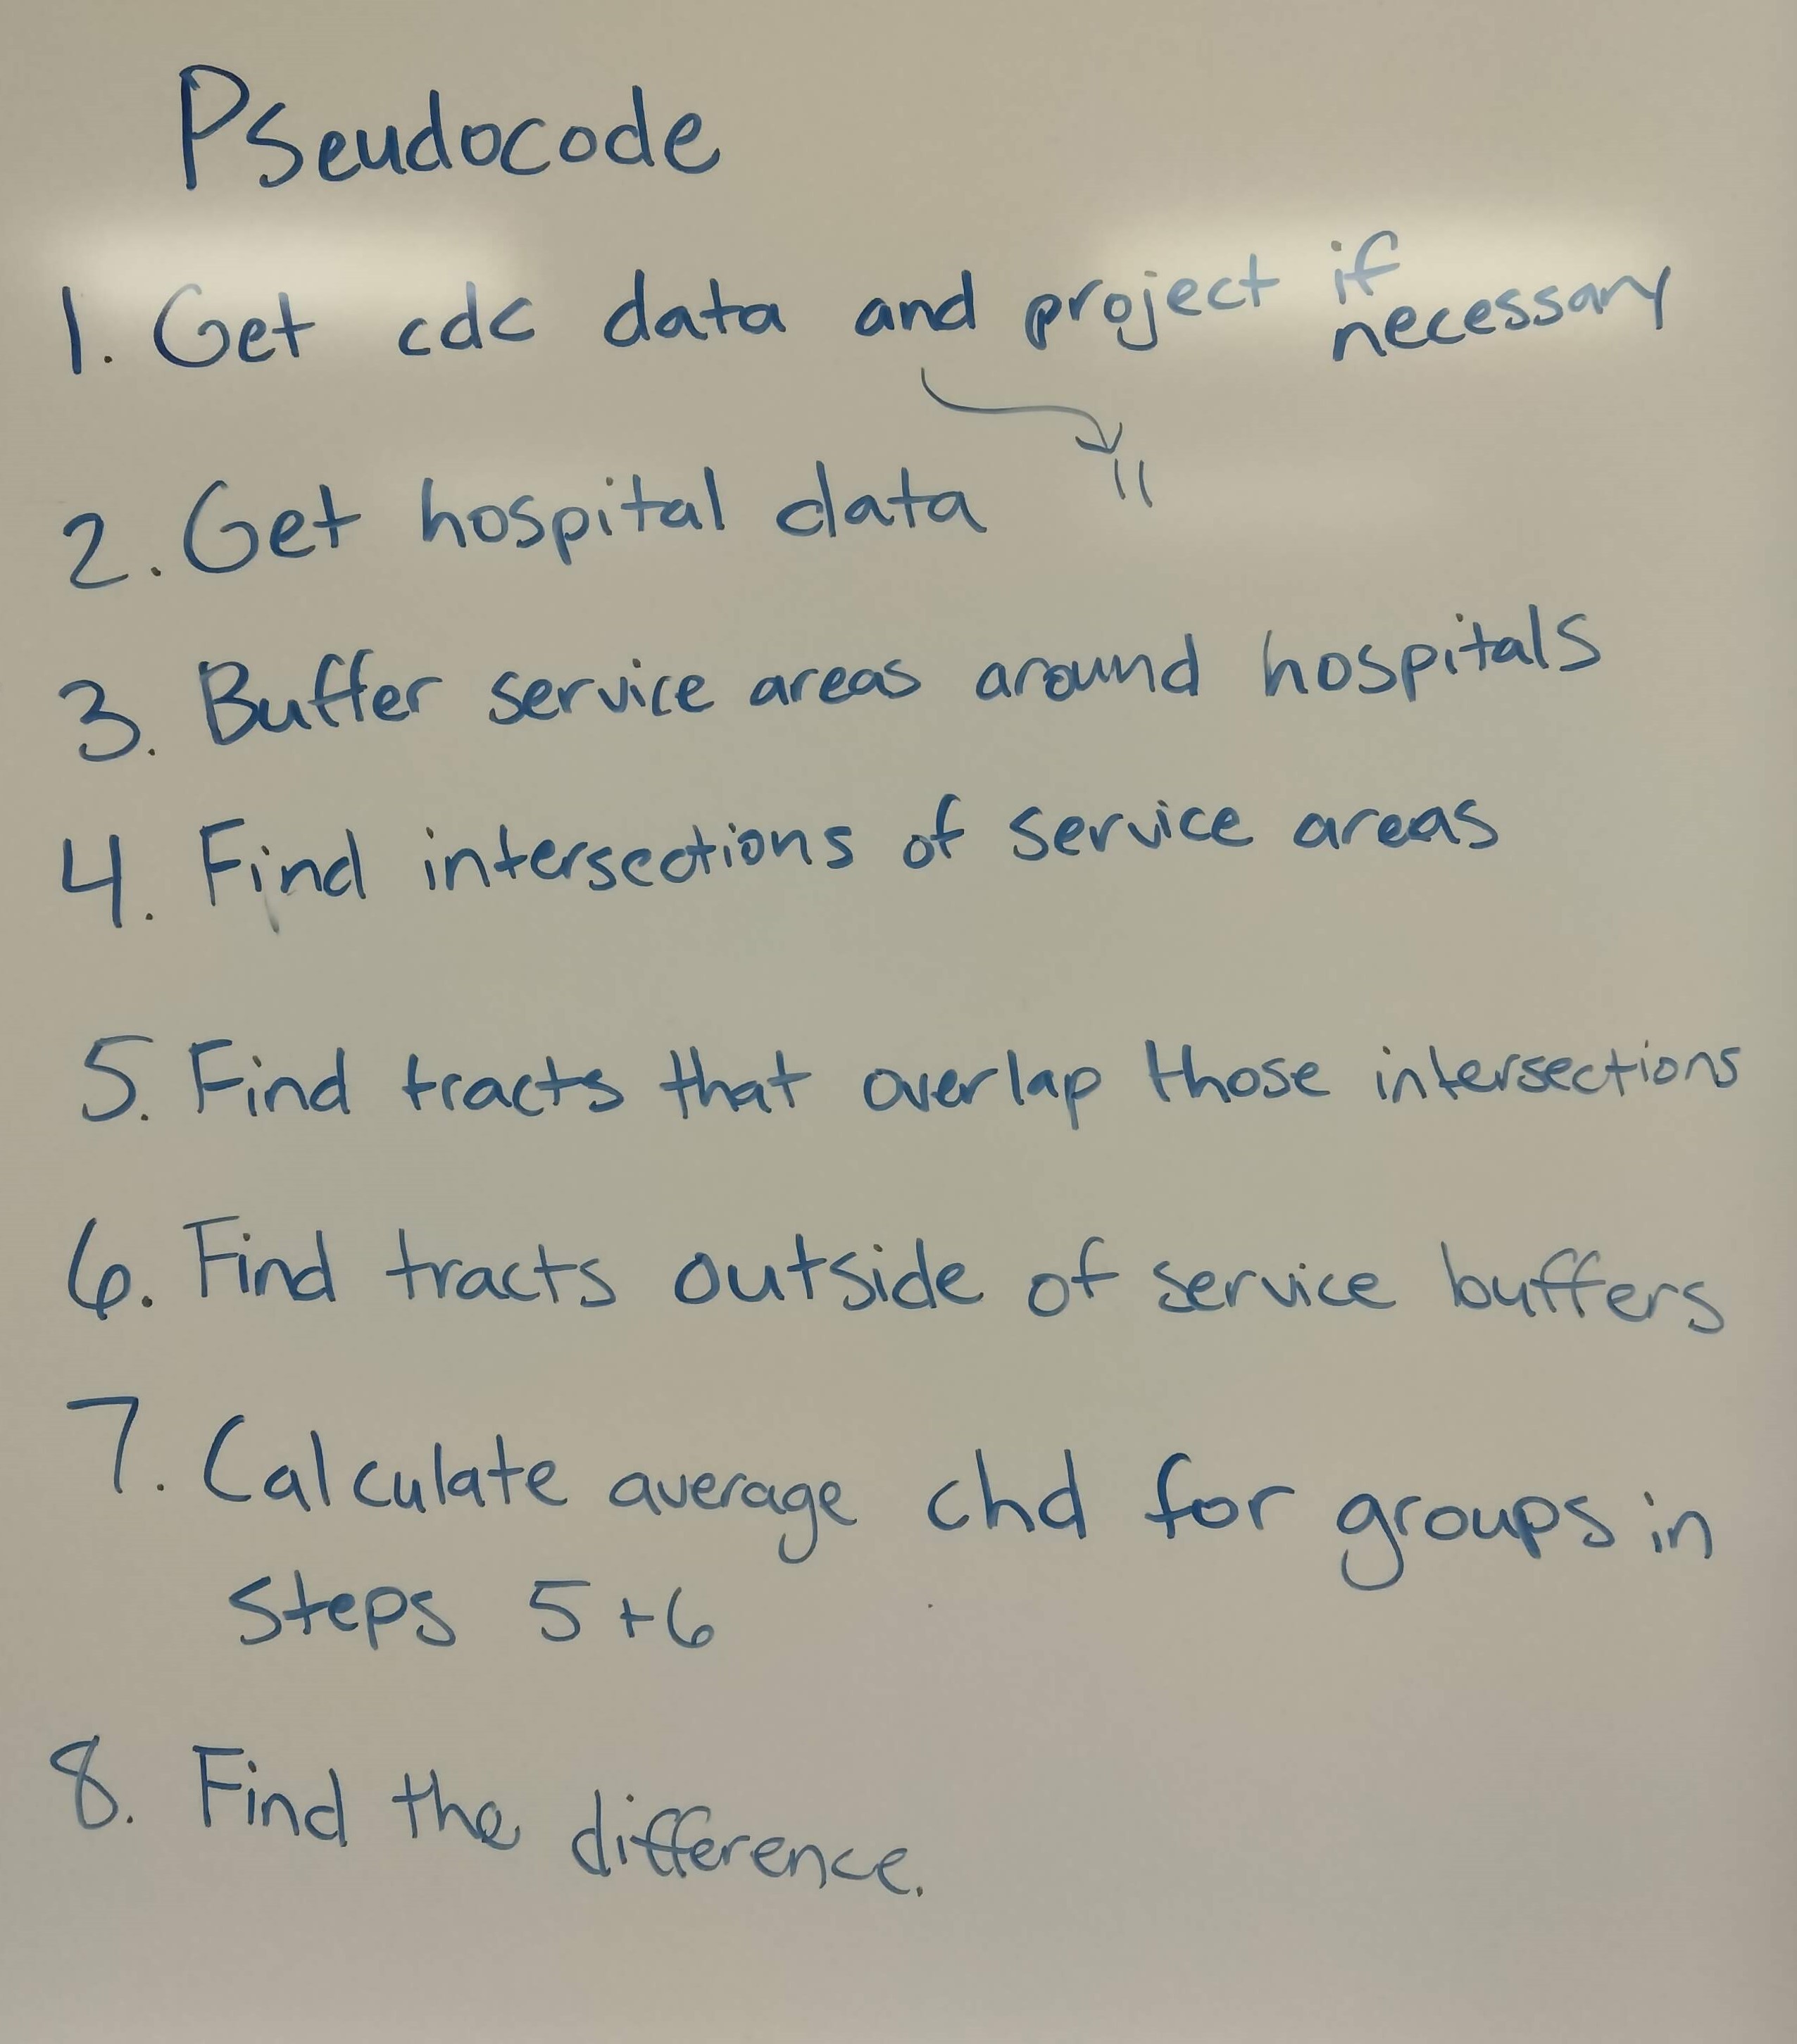 Pseudocode
1. Get cdc data and project if necessary
2. Get hospital data "
3. Buffer service areas around hospitals
4. Find intersections of service areas
5. Find tracts that overlap those intersections
6. Find tracts outside of service buffers
7. Calculate average chd for groups in
steps 5+6
8. Find the difference.